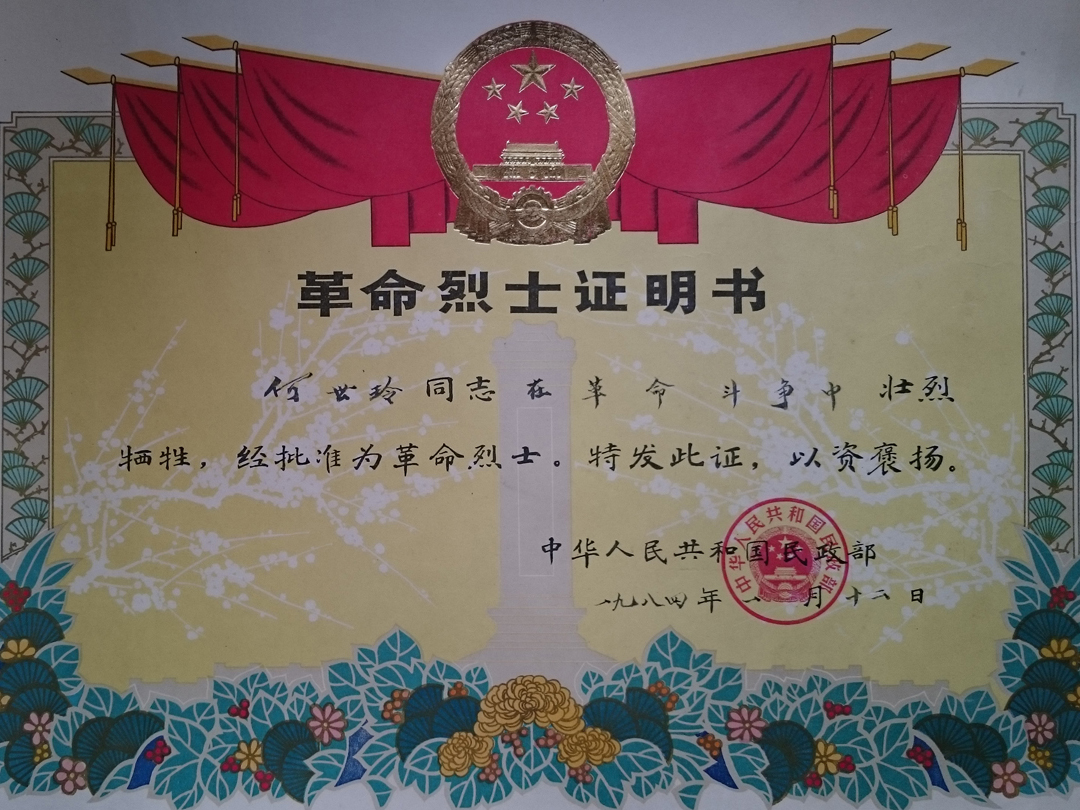 革命烈士证明书
何世玲同志在革命斗争中壮烈
牺牲，经批准为革命烈士。特发此证，以资褒扬。
中华人民共和国民政部
一九八四年 月十二日
中华人民共和国民政部